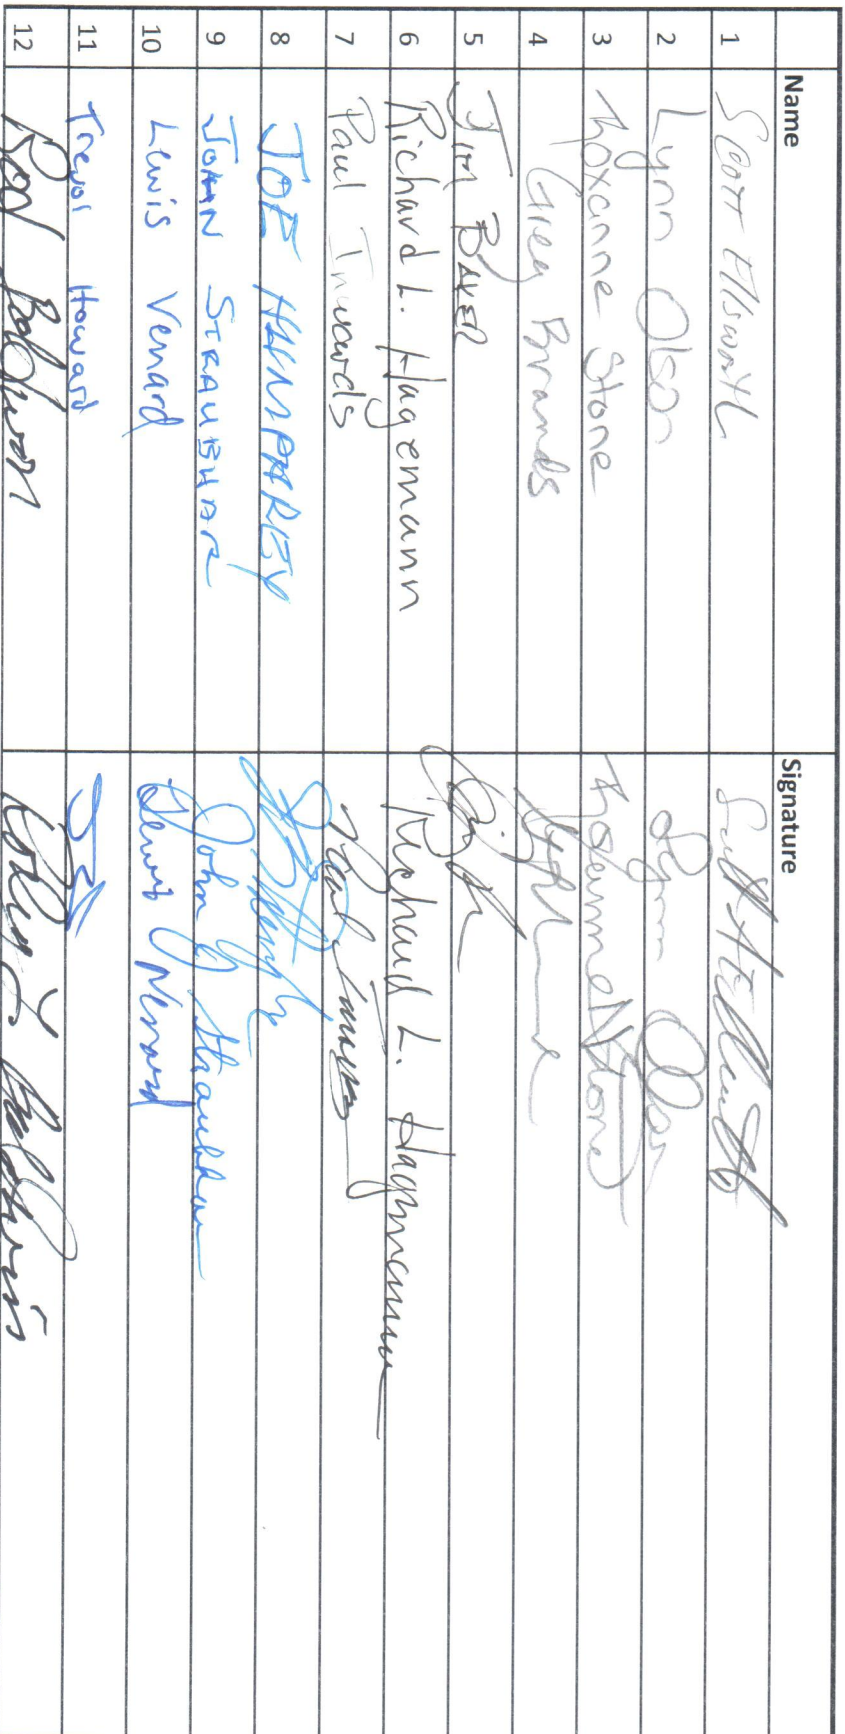 Name Signature
1 Scott Ellsworth
2 Lynn Olson Lynn Olson
3 Roxanne Stone Roxanne Stone
4 Greg Brands
5 Jim BAKER
6 Richard L. Hagemann Richard L. Hagemann
7 Paul Inwards Paul
8 JOE HUMPHREY
9 JOHN STRAUBHAR John Straubhar
10 Lewis Venard Lewis Venard
11 Trevor Howard
12 Rod Baldwin Baldwin